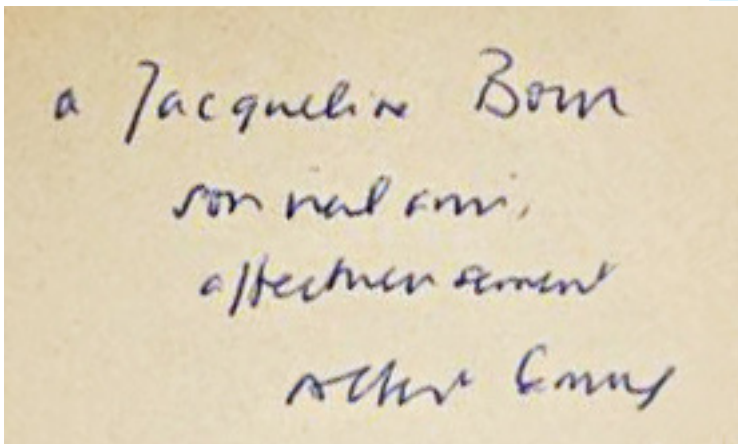 à Jacqueline Bour
son vieil ami,
affectueusement
Albert Camus